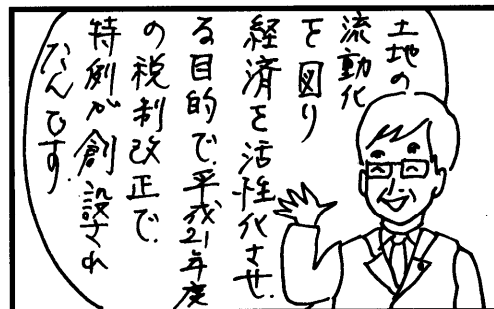 土地の
流動化
を図り
経済を活性化させ.
る目的で.平成21年度
の税制改正で.
特例が創設され
なんです.